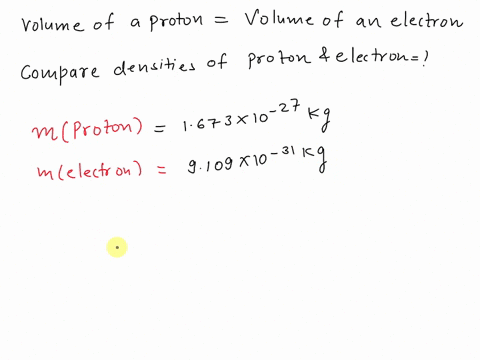 Volume of a proton = Volume of an electron
Compare densities of proton & electron = ?
m(Proton) = 1.673 × 10⁻²⁷ kg
m(electron) = 9.109 × 10⁻³¹ kg